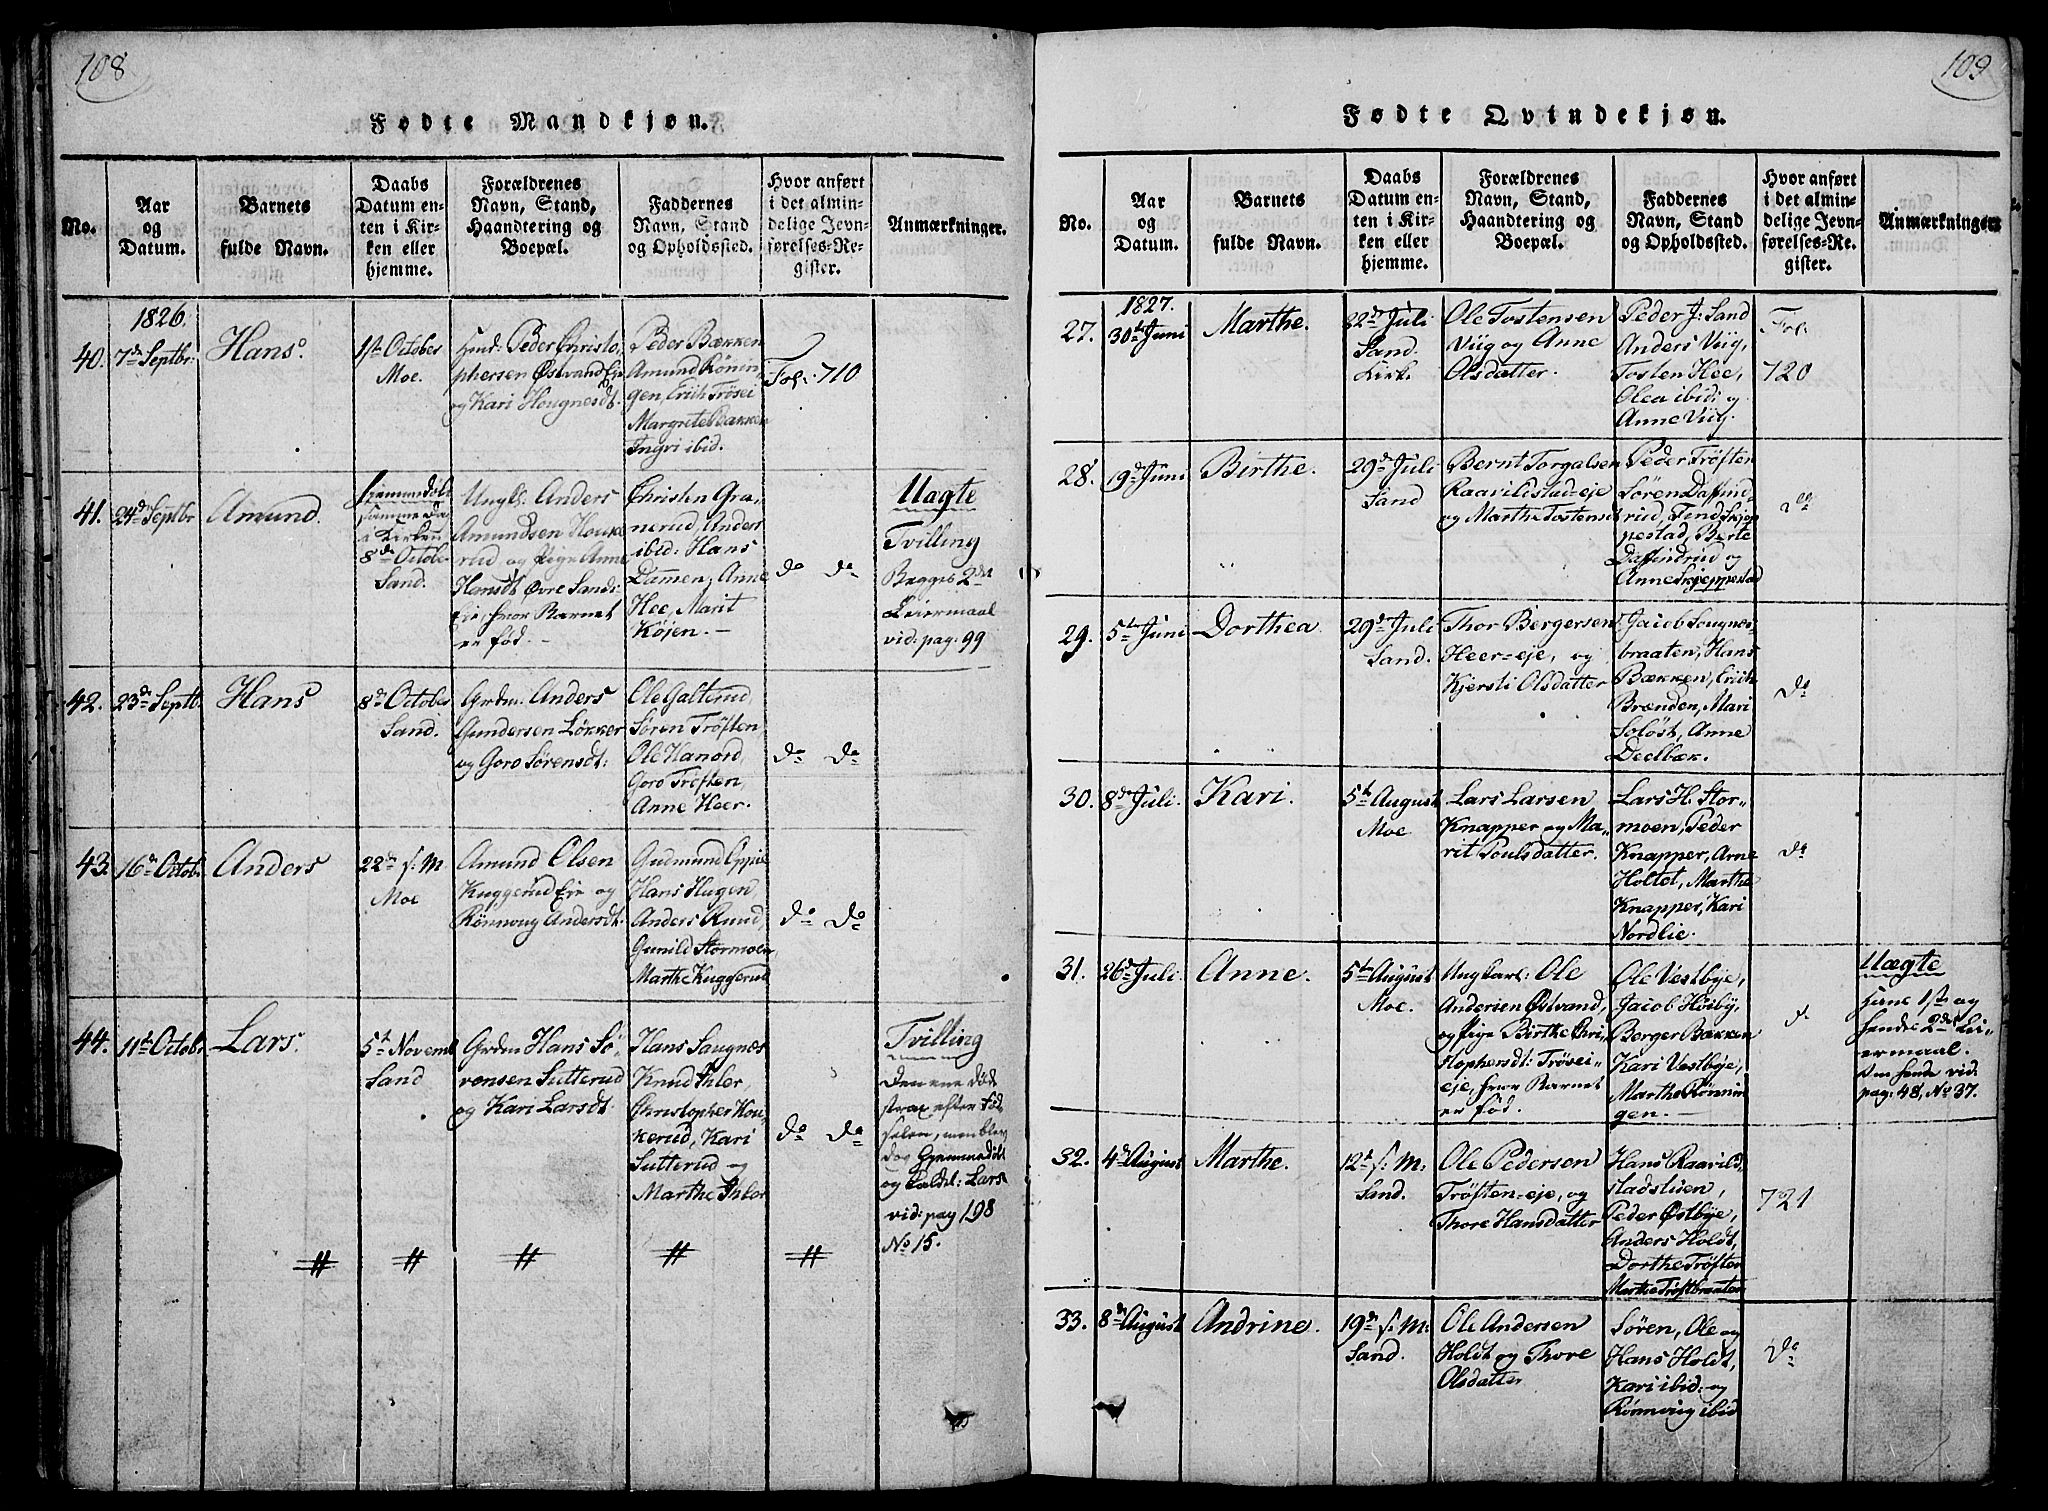 108
Fødte Mandkjøn.
No.
Aar
og
Datum.
Barnets
fulde Navn.
Daabs
Datum en-
ten i Kir-
ken eller
hjemme.
Forældrenes
Navn, Stand,
Haandtering og
Boepæl.
Faddernes
Navn, Stand
og Opholdssted.
Hvor anført
i det almin-
delige Jevn-
førelses-Re-
gister.
Anmærkninger.
1826.
40.
7de Septbr:
Hans.
1ste October
Moe.
Huusd: Peder Christo,
phersen Østvand Eje
og Kari Hougnesdt.
Peder Bækken
Amund Rönin,
gen, Erich Trösei
Margrete Bækken
Ingri ibid.
Fol: 710
41.
24de Septbr
Amund.
hjemmedöbt
samme Da
i Kirken
8de Octobr
Sand.
Ungk. Anders
Amundsen Houke
rud og Pige Anne
Hansdt Øvre Sand-
Eje, hvor Barnet
er fød. -
Christen Gra,
nerud, Anders
ibid: Hans
Dammen, Anne
Hee, Marit
Köjen. -
do do
Uægte
Tvilling
Begges 2det
Leiermaal
vid: pag: 99
42.
23de Septb.
Hans
8de October
Sand.
Grdm. Anders
Gundersen Løkker
og Goro Sørensdt:
Ole Galterud,
Søren Tröften,
Ole Hanord,
Goro Tröften,
Anne Heer.
do do
43.
16de Octobr
Anders
22de s. M
Moe
Amund Olsen
Kuggerud Eje og
Rönnoug Andersdt.
Gudmund Oppie
Hans Hugen
Anders Ruud,
Gunild Stormoen
Marthe Kuggerud
do do
44.
11te Octobr
Lars.
5te Novemb
Sand
Grdm Hans Sö,
rensen Sutterud
og Kari Larsdt.
Hans Saugnæs
Knud Ihler,
Christopher Hou,
kerud, Kari
Sutterud og
Marthe Ihler
do do
Tvilling
Den ene död
strax efter Föd
selen, men blev
dog hjemmedöbt
og kaldet: Lars
vid: pag 198
No 15.
# # # # #
109
Fødte Qvindekjøn.
No.
Aar
og
Datum.
Barnets
fulde Navn.
Daabs
Datum en-
ten i Kir-
ken eller
hjemme.
Forældrenes
Navn, Stand,
Haandtering og
Boepæl.
Faddernes
Navn, Stand
og Opholdssted.
Hvor anført
i det almin-
delige Jevn-
førelses-Re-
gister.
Anmærkninger
1827.
27.
30te Juni
Marthe.
22de Juli
Sand.
Kirk.
Ole Tostensen
Viig og Anne
Olsdatter.
Peder J: Sand
Anders Viig,
Tosten Hee,
Olea ibid: og
Anne Viig.
Fol:
720
28.
19de Juni
Birthe.
29de Juli
Sand
Bernt Torgalsen
Raavilistad-eje
og Marthe Tostensd
Peder Tröften
Sören Daffind-
rud, Fend Skjep
pestad, Berte
Daffindrud og
Anne Skjeppestad
do
29.
5te Juni
Dorthea
29de Juli
Sand.
Thor Bergersen
Heer-eje, og
Kjersti Olsdatter
Jacob Sougnes-
braaten, Hans
Bækken, Erich
Brænden, Mari
Soløst, Anne
Deelbæk.
do
30.
8de Juli.
Kari.
5te August
Moe
Lars Larsen
Knapper og Ma,
rit Poulsdatter.
Lars H. Stor-
moen, Peder
Knapper, Arne
Holtet, Marthe
Knapper, Kari
Nordlie.
do
31.
26de Juli.
Anne.
5te August
Moe.
Ungkarl: Ole
Andersen Østvand,
og Pige Birthe Chri,
stophersdt: Trösei-
eje, hvor Barnet
er fød.
Ole Vestbye,
Jacob Höiby,
Berger Bækken
Kari Vestbye,
Marthe Rönnin
gen. -
d.
Uægte
Hans 1ste og
hendes 2det Lei-
ermaal.
Om hende vid.
pag: 48, No 37.
32.
4de August
Marthe.
12te s: M:
Sand.
Ole Pedersen
Tröften-eje, og
Thore Hansdatter
Hans Raavild,
stadstuen,
Peder Østbye,
Anders Holdt,
Dorthe Tröften
Marthe Tröftbraaten
721
33.
8de August
Andrine.
19de s: M:
Sand.
Ole Andersen
Holdt og Thore
Olsdatter
Søren, Ole og
Hans Holdt,
Kari ibid: og
Rönnoug ibid
do